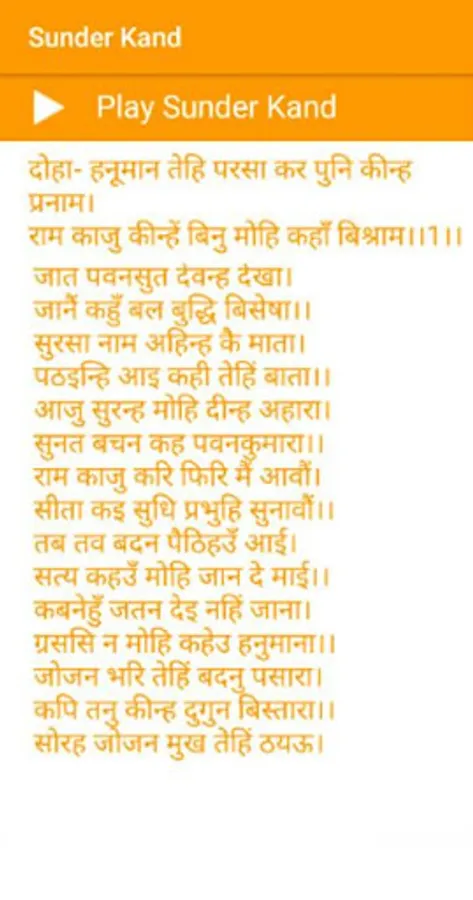 Sunder Kand
Play Sunder Kand
दोहा- हनूमान तेहि परसा कर पुनि कीन्ह
प्रनाम।
राम काजु कीन्हें बिनु मोहि कहाँ बिश्राम।।1।।
जात पवनसुत देवन्ह देखा।
जानैं कहुँ बल बुद्धि बिसेषा।।
सुरसा नाम अहिन्ह कै माता।
पठइन्हि आइ कही तेहिं बाता।।
आजु सुरन्ह मोहि दीन्ह अहारा।
सुनत बचन कह पवनकुमारा।।
राम काजु करि फिरि मैं आवौं।
सीता कइ सुधि प्रभुहि सुनावौं।।
तब तव बदन पैठिहउँ आई।
सत्य कहउँ मोहि जान दे माई।।
कबनेहुँ जतन देइ नहिं जाना।
ग्रससि न मोहि कहेउ हनुमाना।।
जोजन भरि तेहिं बदनु पसारा।
कपि तनु कीन्ह दुगुन बिस्तारा।।
सोरह जोजन मुख तेहिं ठयऊ।